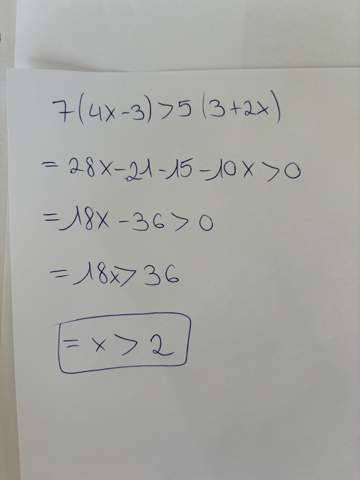 7(4x-3)>5(3+2x)
= 28x-21-15-10x>0
= 18x-36>0
= 18x>36
= x>2